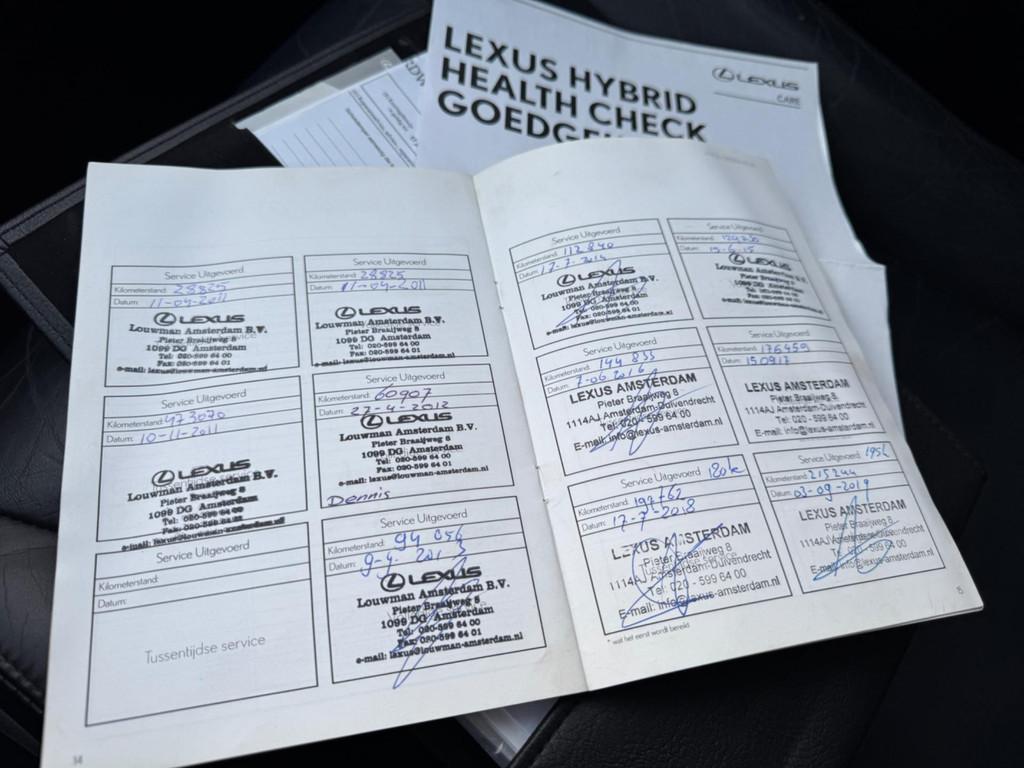 LEXUS HYBRID
HEALTH CHECK
LEXUS
CARE
Service Uitgevoerd
Kilometerstand: 28825
Datum: 11-04-2011
LEXUS
Louwman Amsterdam B.V.
Pieter Braaijweg 8
1099 DG Amsterdam
Tel: 020-599 64 00
Fax: 020-599 64 01
e-mail: lexus@louwman-amsterdam.nl
Service Uitgevoerd
Kilometerstand: 28825
Datum: 11-04-2011
LEXUS
Louwman Amsterdam B.V.
Pieter Braaijweg 8
1099 DG Amsterdam
Tel: 020-599 64 00
Fax: 020-599 64 01
e-mail: lexus@louwman-amsterdam.nl
Service Uitgevoerd
Kilometerstand:
Datum: 10-11-2011
LEXUS
Tussentijdse service
Louwman Amsterdam B.V.
Pieter Braaijweg 8
1099 DG Amsterdam
Tel: 020-599 64 00
e-mail: lexus@louwman-amsterdam.nl
Service Uitgevoerd
Kilometerstand: 60907
Datum: 23-4-2012
LEXUS
Louwman Amsterdam B.V.
Pieter Braaijweg 8
1099 DG Amsterdam
Tel: 020-599 64 00
Fax: 020-599 64 01
e-mail: lexus@louwman-amsterdam.nl
Dennis
Service Uitgevoerd
Kilometerstand:
Datum:
Tussentijdse service
Service Uitgevoerd
Kilometerstand: 94 056
Datum: 9-4-2013
LEXUS
Louwman Amsterdam B.V.
Pieter Braaijweg 8
1099 DG Amsterdam
Tel: 020-599 64 00
Fax: 020-599 64 01
e-mail: lexus@louwman-amsterdam.nl
14
Service Uitgevoerd
Kilometerstand: 112840
Datum: 17-7-2014
LEXUS
Louwman Amsterdam B.V.
Pieter Braaijweg 8
1099 DG Amsterdam
Tel: 020-599 64 00
Fax: 020-599 64 01
e-mail: lexus@louwman-amsterdam.nl
Service Uitgevoerd
Kilometerstand:
Datum: 15-6-15
LEXUS
Louwman Amsterdam B.V.
Pieter Braaijweg 8
1099 DG Amsterdam
Service Uitgevoerd
Kilometerstand: 144 835
Datum: 7-06 2016
LEXUS AMSTERDAM
Pieter Braaijweg 8
1114AJ Amsterdam-Duivendrecht
Tel: 020 - 599 64 00
E-mail: info@lexus-amsterdam.nl
Service Uitgevoerd
Kilometerstand: 176459
Datum: 150917
LEXUS AMSTERDAM
Pieter Braaijweg 8
1114AJ Amsterdam-Duivendrecht
Tel: 020 - 599 64 00
E-mail: info@lexus-amsterdam.nl
Service Uitgevoerd 180k
Kilometerstand: 197762
Datum: 17-7-2018
LEXUS AMSTERDAM
Pieter Braaijweg 8
Tussentijdse service
1114AJ Amsterdam-Duivendrecht
Tel: 020 - 599 64 00
E-mail: info@lexus-amsterdam.nl
Service Uitgevoerd 195k
Kilometerstand: 215244
Datum: 03-09-2019
LEXUS AMSTERDAM
Pieter Braaijweg 8
1114AJ Amsterdam-Duivendrecht
Tel: 020 - 599 64 00
E-mail: info@lexus-amsterdam.nl
* wat het eerst wordt bereikt
15